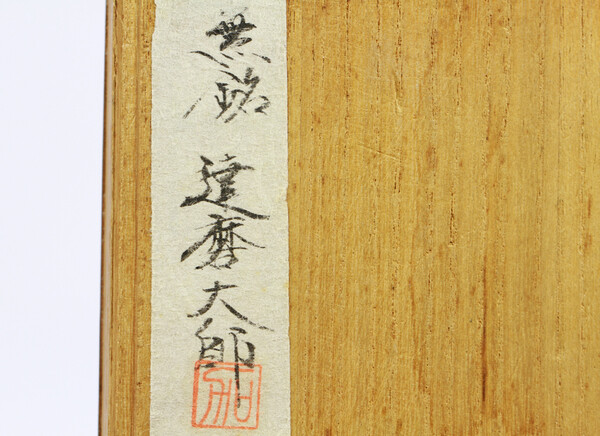 無銘 達磨大師